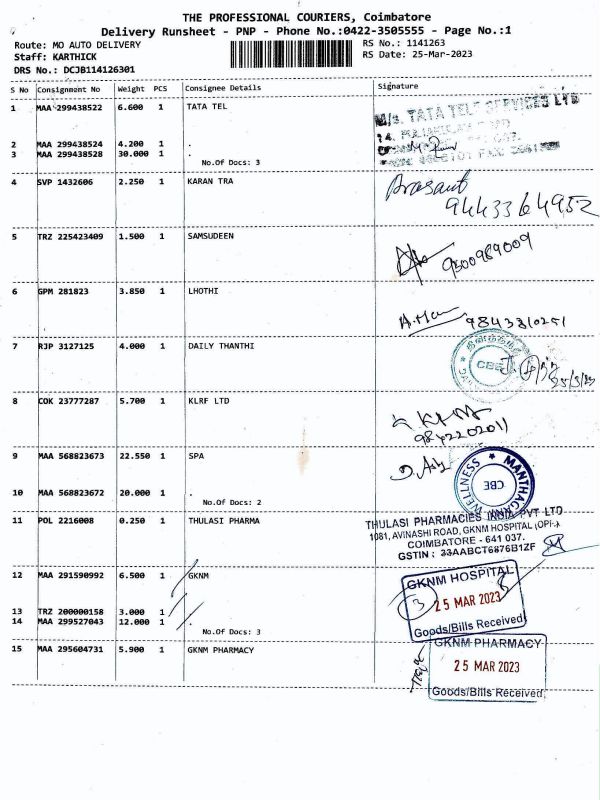 THE PROFESSIONAL COURIERS, Coimbatore
Delivery Runsheet - PNP - Phone No.:0422-3505555 - Page No.:1
Route: MO AUTO DELIVERY
Staff: KARTHICK
DRS No.: DCJB114126301
RS No.: 1141263
RS Date: 25-Mar-2023
S No Consignment No Weight PCS Consignee Details Signature
1 MAA 299438522 6.600 1 TATA TEL
M/s. TATA TELE SERVICES LTD
2 MAA 299438524 4.200 1 .
3 MAA 299438528 30.000 1 .
No.Of Docs: 3
4 SVP 1432606 2.250 1 KARAN TRA
Prasant
9443364952
5 TRZ 225423409 1.500 1 SAMSUDEEN
9500989009
6 GPM 281823 3.850 1 LHOTHI
9843310251
7 RJP 3127125 4.000 1 DAILY THANTHI
CBE
25/3/23
8 COK 23777287 5.700 1 KLRF LTD
9842202011
9 MAA 568823673 22.550 1 SPA
WELLNESS * MANTHAGINI
CBE
10 MAA 568823672 20.000 1 .
No.Of Docs: 2
11 POL 2216008 0.250 1 THULASI PHARMA
THULASI PHARMACIES INDIA PVT LTD
1081, AVINASHI ROAD, GKNM HOSPITAL (OPP.)
COIMBATORE - 641 037.
GSTIN : 33AABCT6876B1ZF
12 MAA 291590992 6.500 1 GKNM
GKNM HOSPITAL
3
25 MAR 2023
Goods/Bills Received
13 TRZ 200000158 3.000 1 .
14 MAA 299527043 12.000 1 .
No.Of Docs: 3
15 MAA 295604731 5.900 1 GKNM PHARMACY
GKNM PHARMACY
25 MAR 2023
Goods/Bills Received